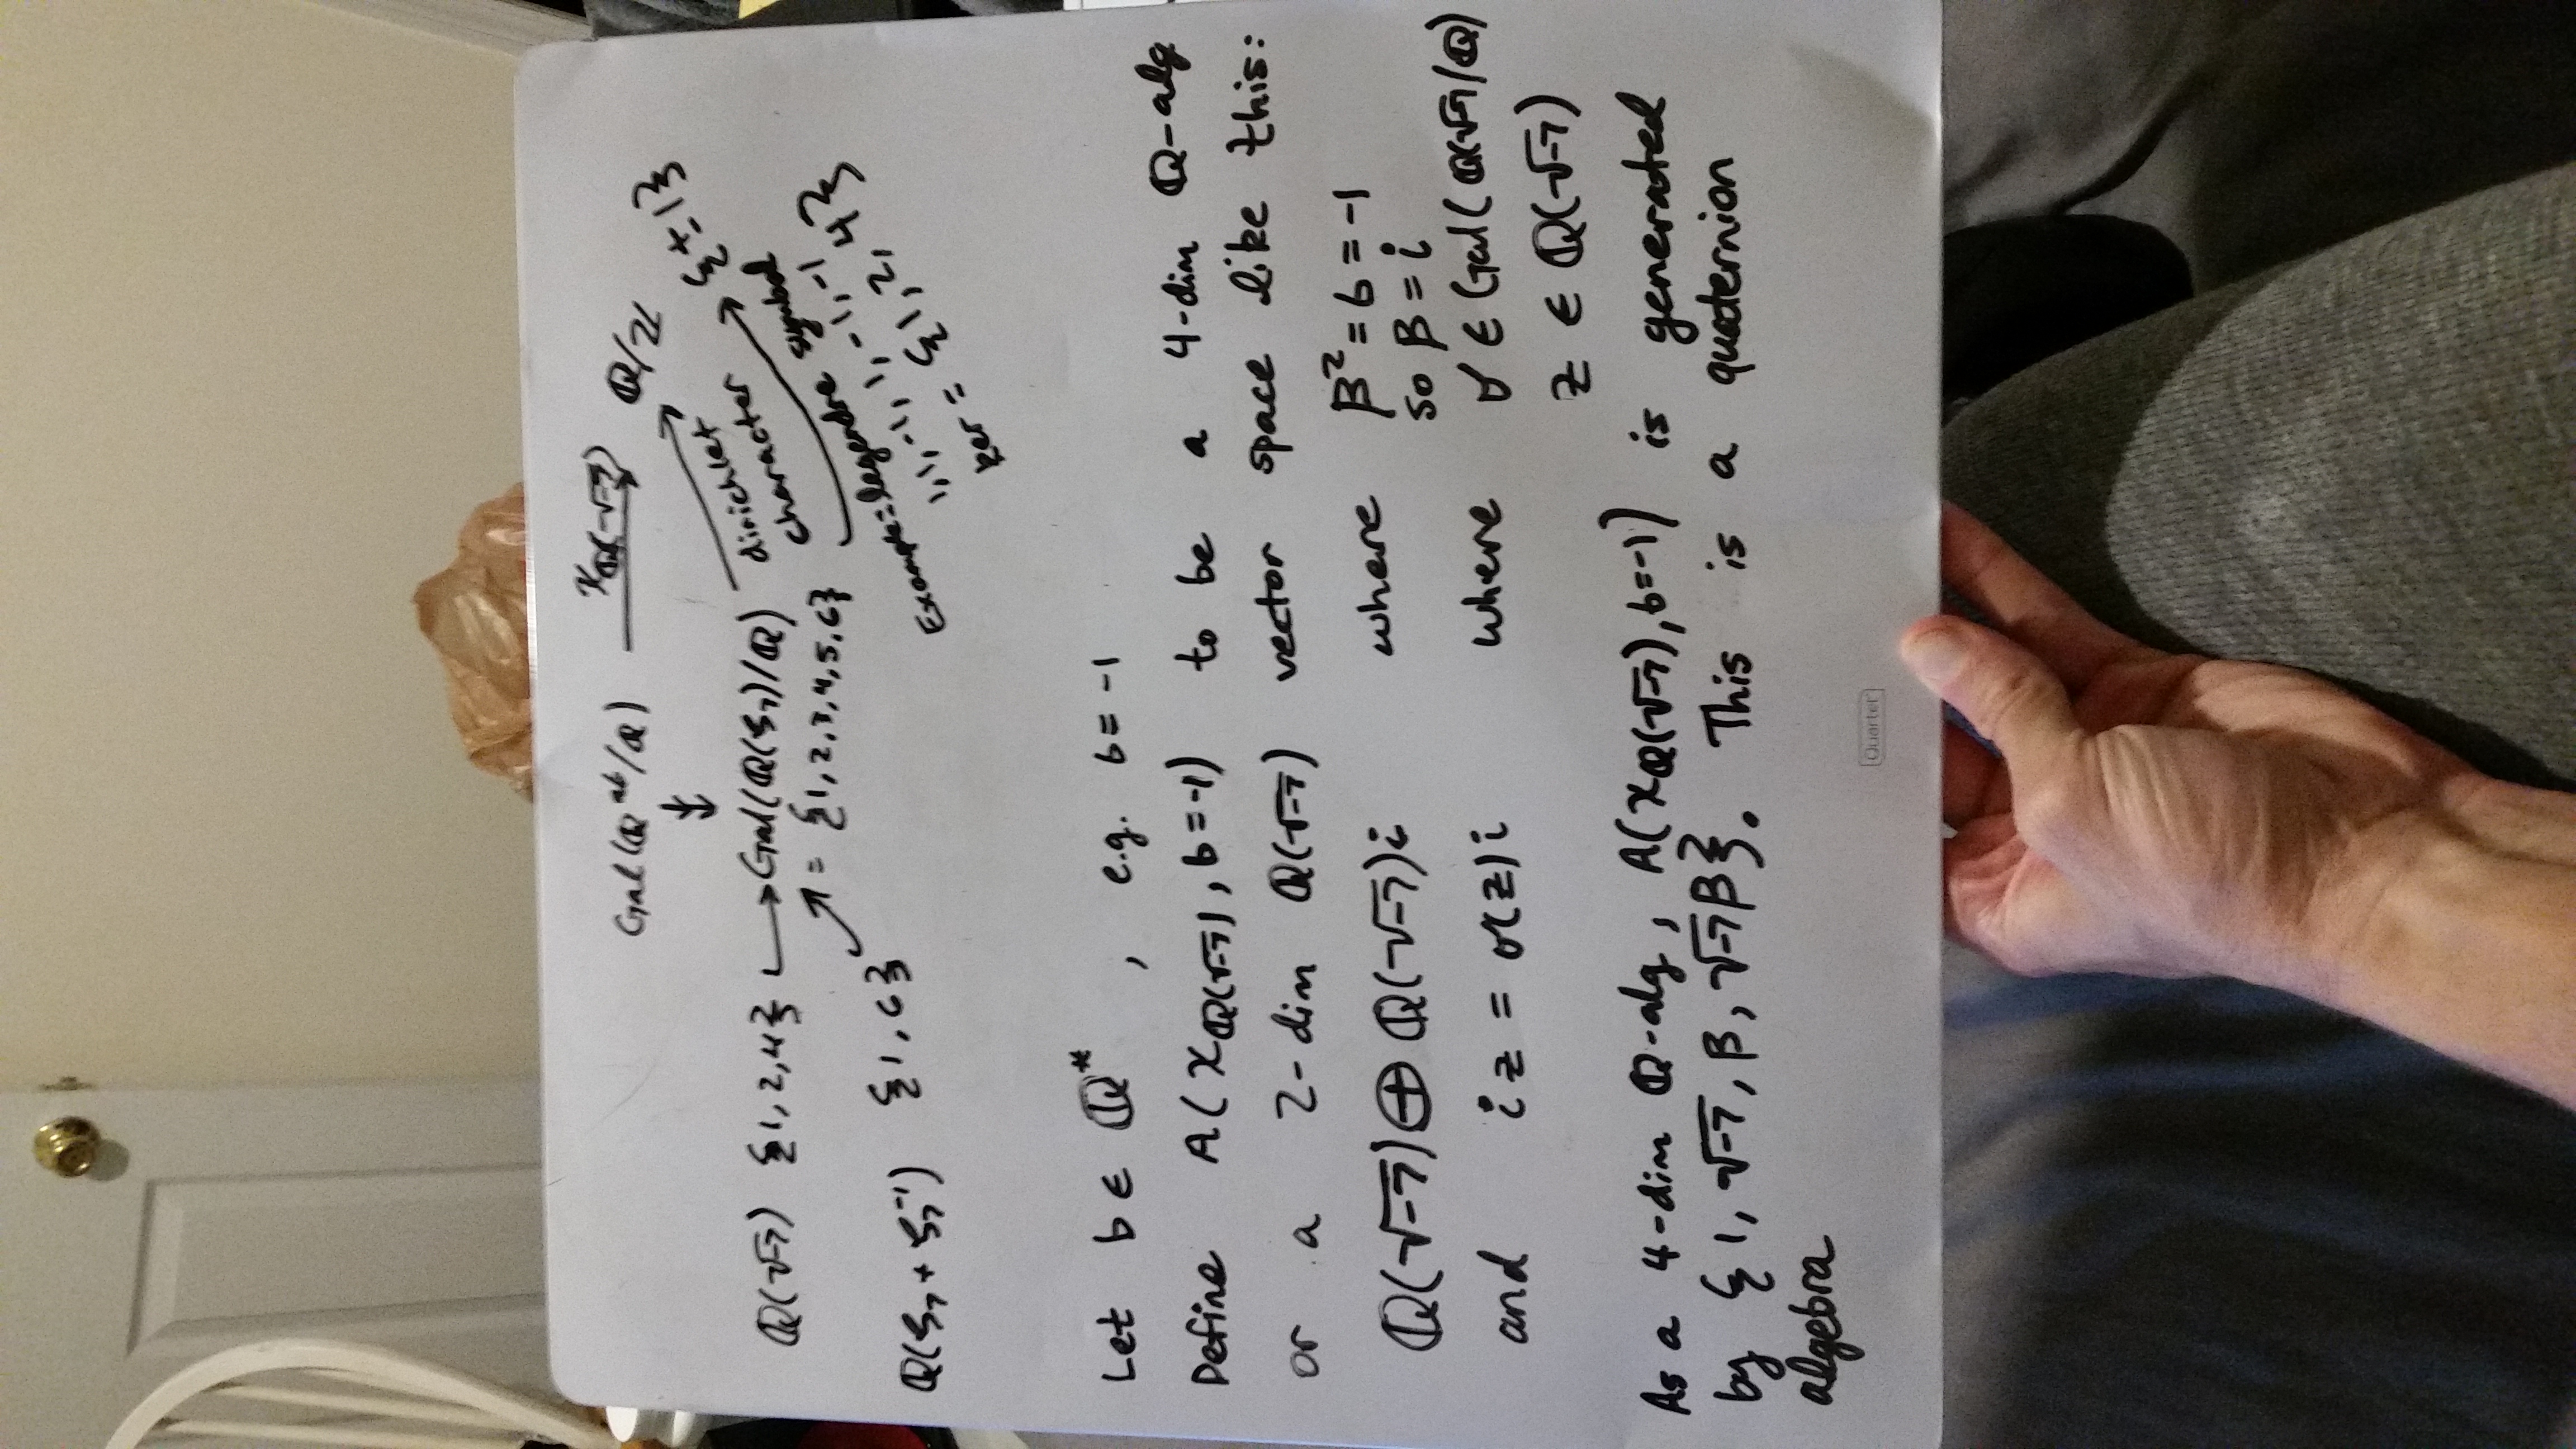 Gal(ℚ^ab/ℚ) → χ_ℚ(√-7) ℚ/ℤ
ℚ(√-7) {1,2,4} ↪ Gal(ℚ(ζ₇)/ℚ) dirichlet character {±1}
= {1,2,3,4,5,6}
ℚ(ζ₇+ζ₇⁻¹) {1,6}
Example: legendre symbol
1,1,-1,1,-1,-1
ker = {1,2,4}
Let b ∈ ℚ* , e.g. b = -1
Define A(χ_ℚ(√-7), b=-1) to be a 4-dim ℚ-alg
or a 2-dim ℚ(√-7) vector space like this:
ℚ(√-7) ⊕ ℚ(√-7)i where β² = b = -1
so β = i
and iz = σ(z)i where σ ∈ Gal(ℚ(√-7/ℚ)
z ∈ ℚ(√-7)
As a 4-dim ℚ-alg, A(χ_ℚ(√-7), b=-1) is generated
by {1, √-7, β, √-7β}. This is a quaternion
algebra
Quartet